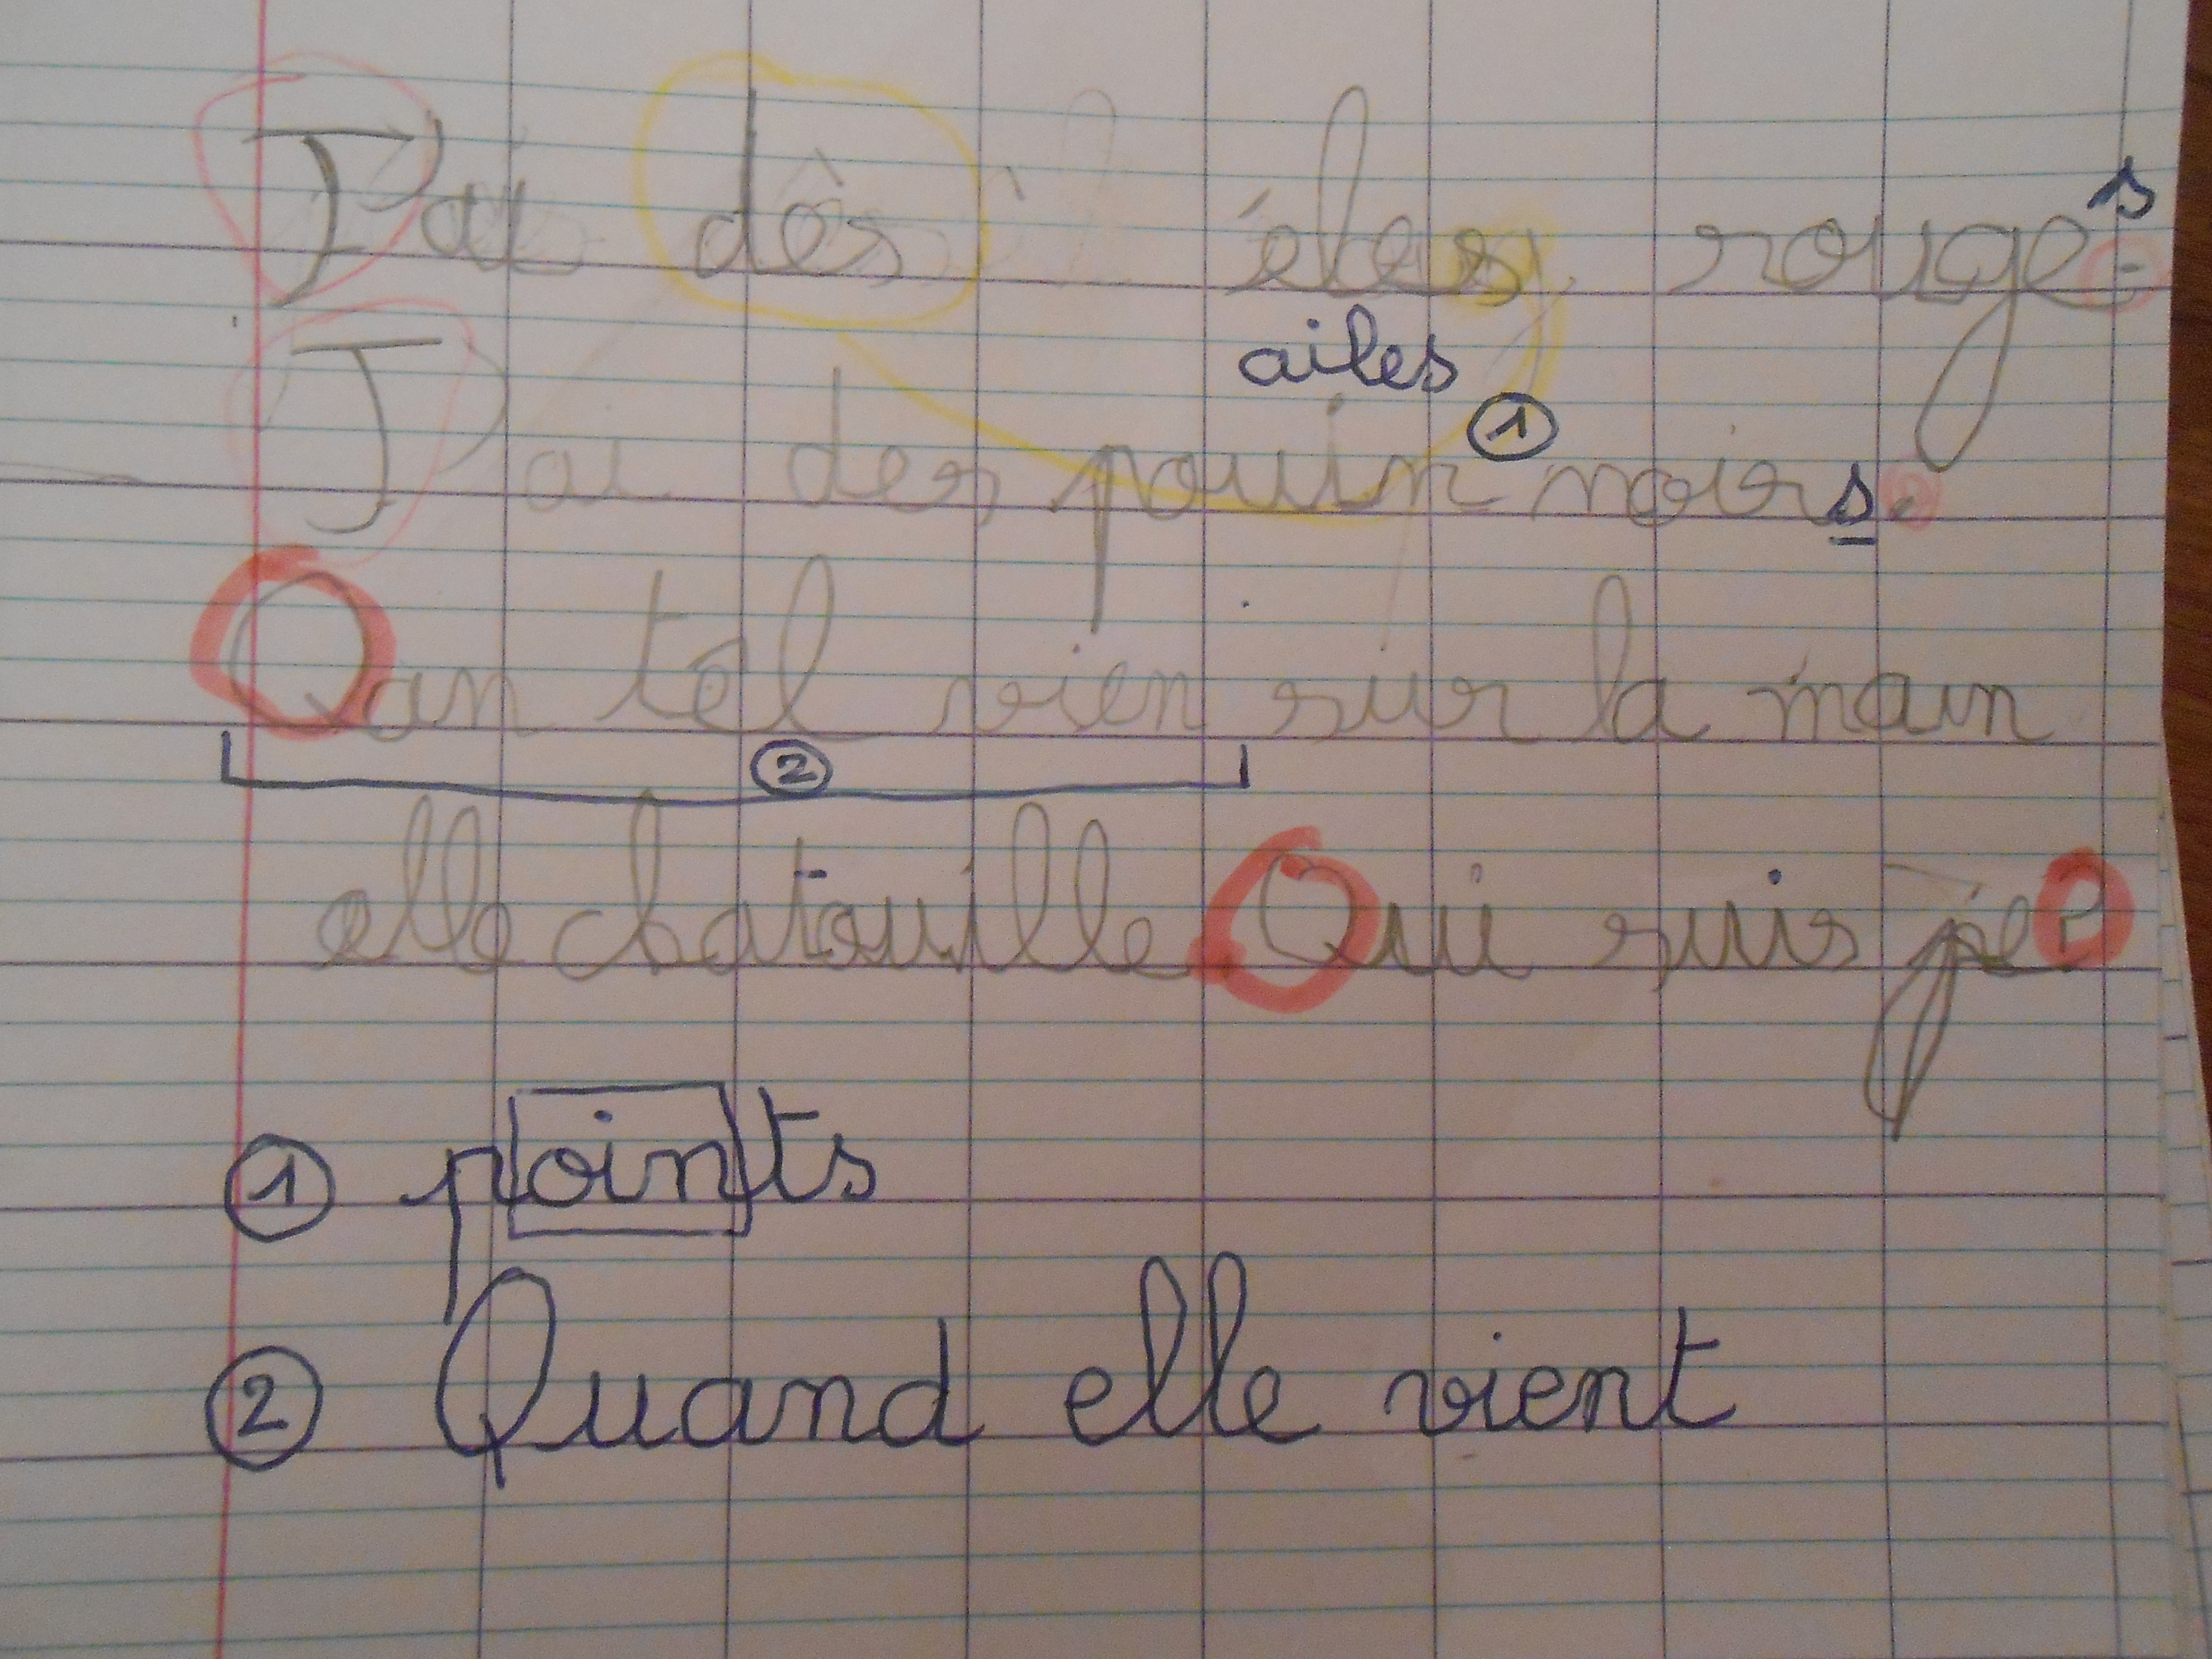 J'ai dês éles rouges.
ailes
J'ai des pouin ① noirs.
Qan tel vien sur la main
②
elle chatouille. Qui suis je?
① points
② Quand elle vient